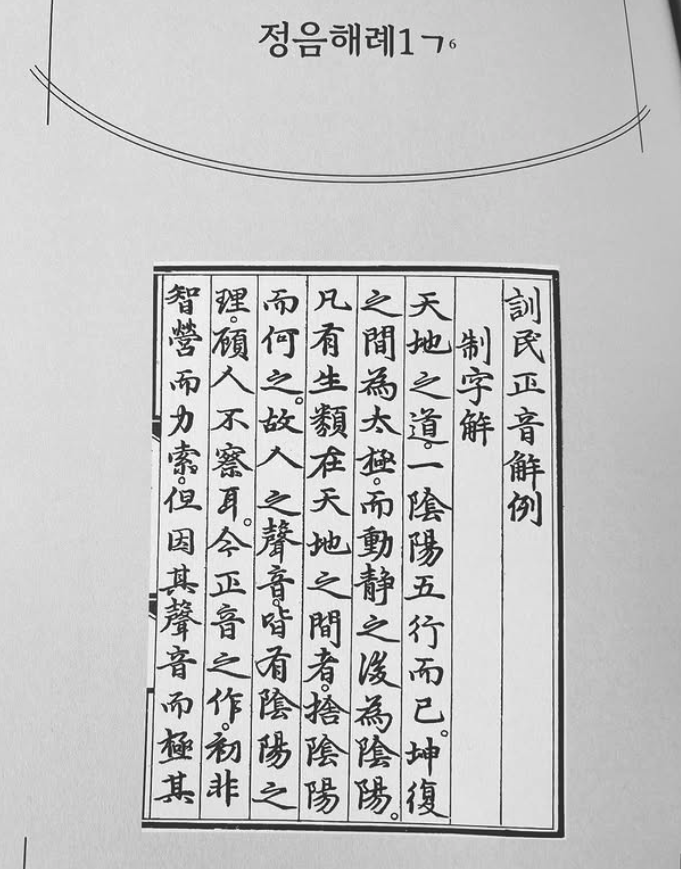 정음해례1ㄱ6
訓民正音解例
制字解
天地之道。一陰陽五行而已。坤復
之間為太極。而動静之後為陰陽。
凡有生類在天地之間者。捨陰陽
而何之。故人之聲音。皆有陰陽之
理。顧人不察耳。今正音之作。初非
智營而力索。但因其聲音而極其